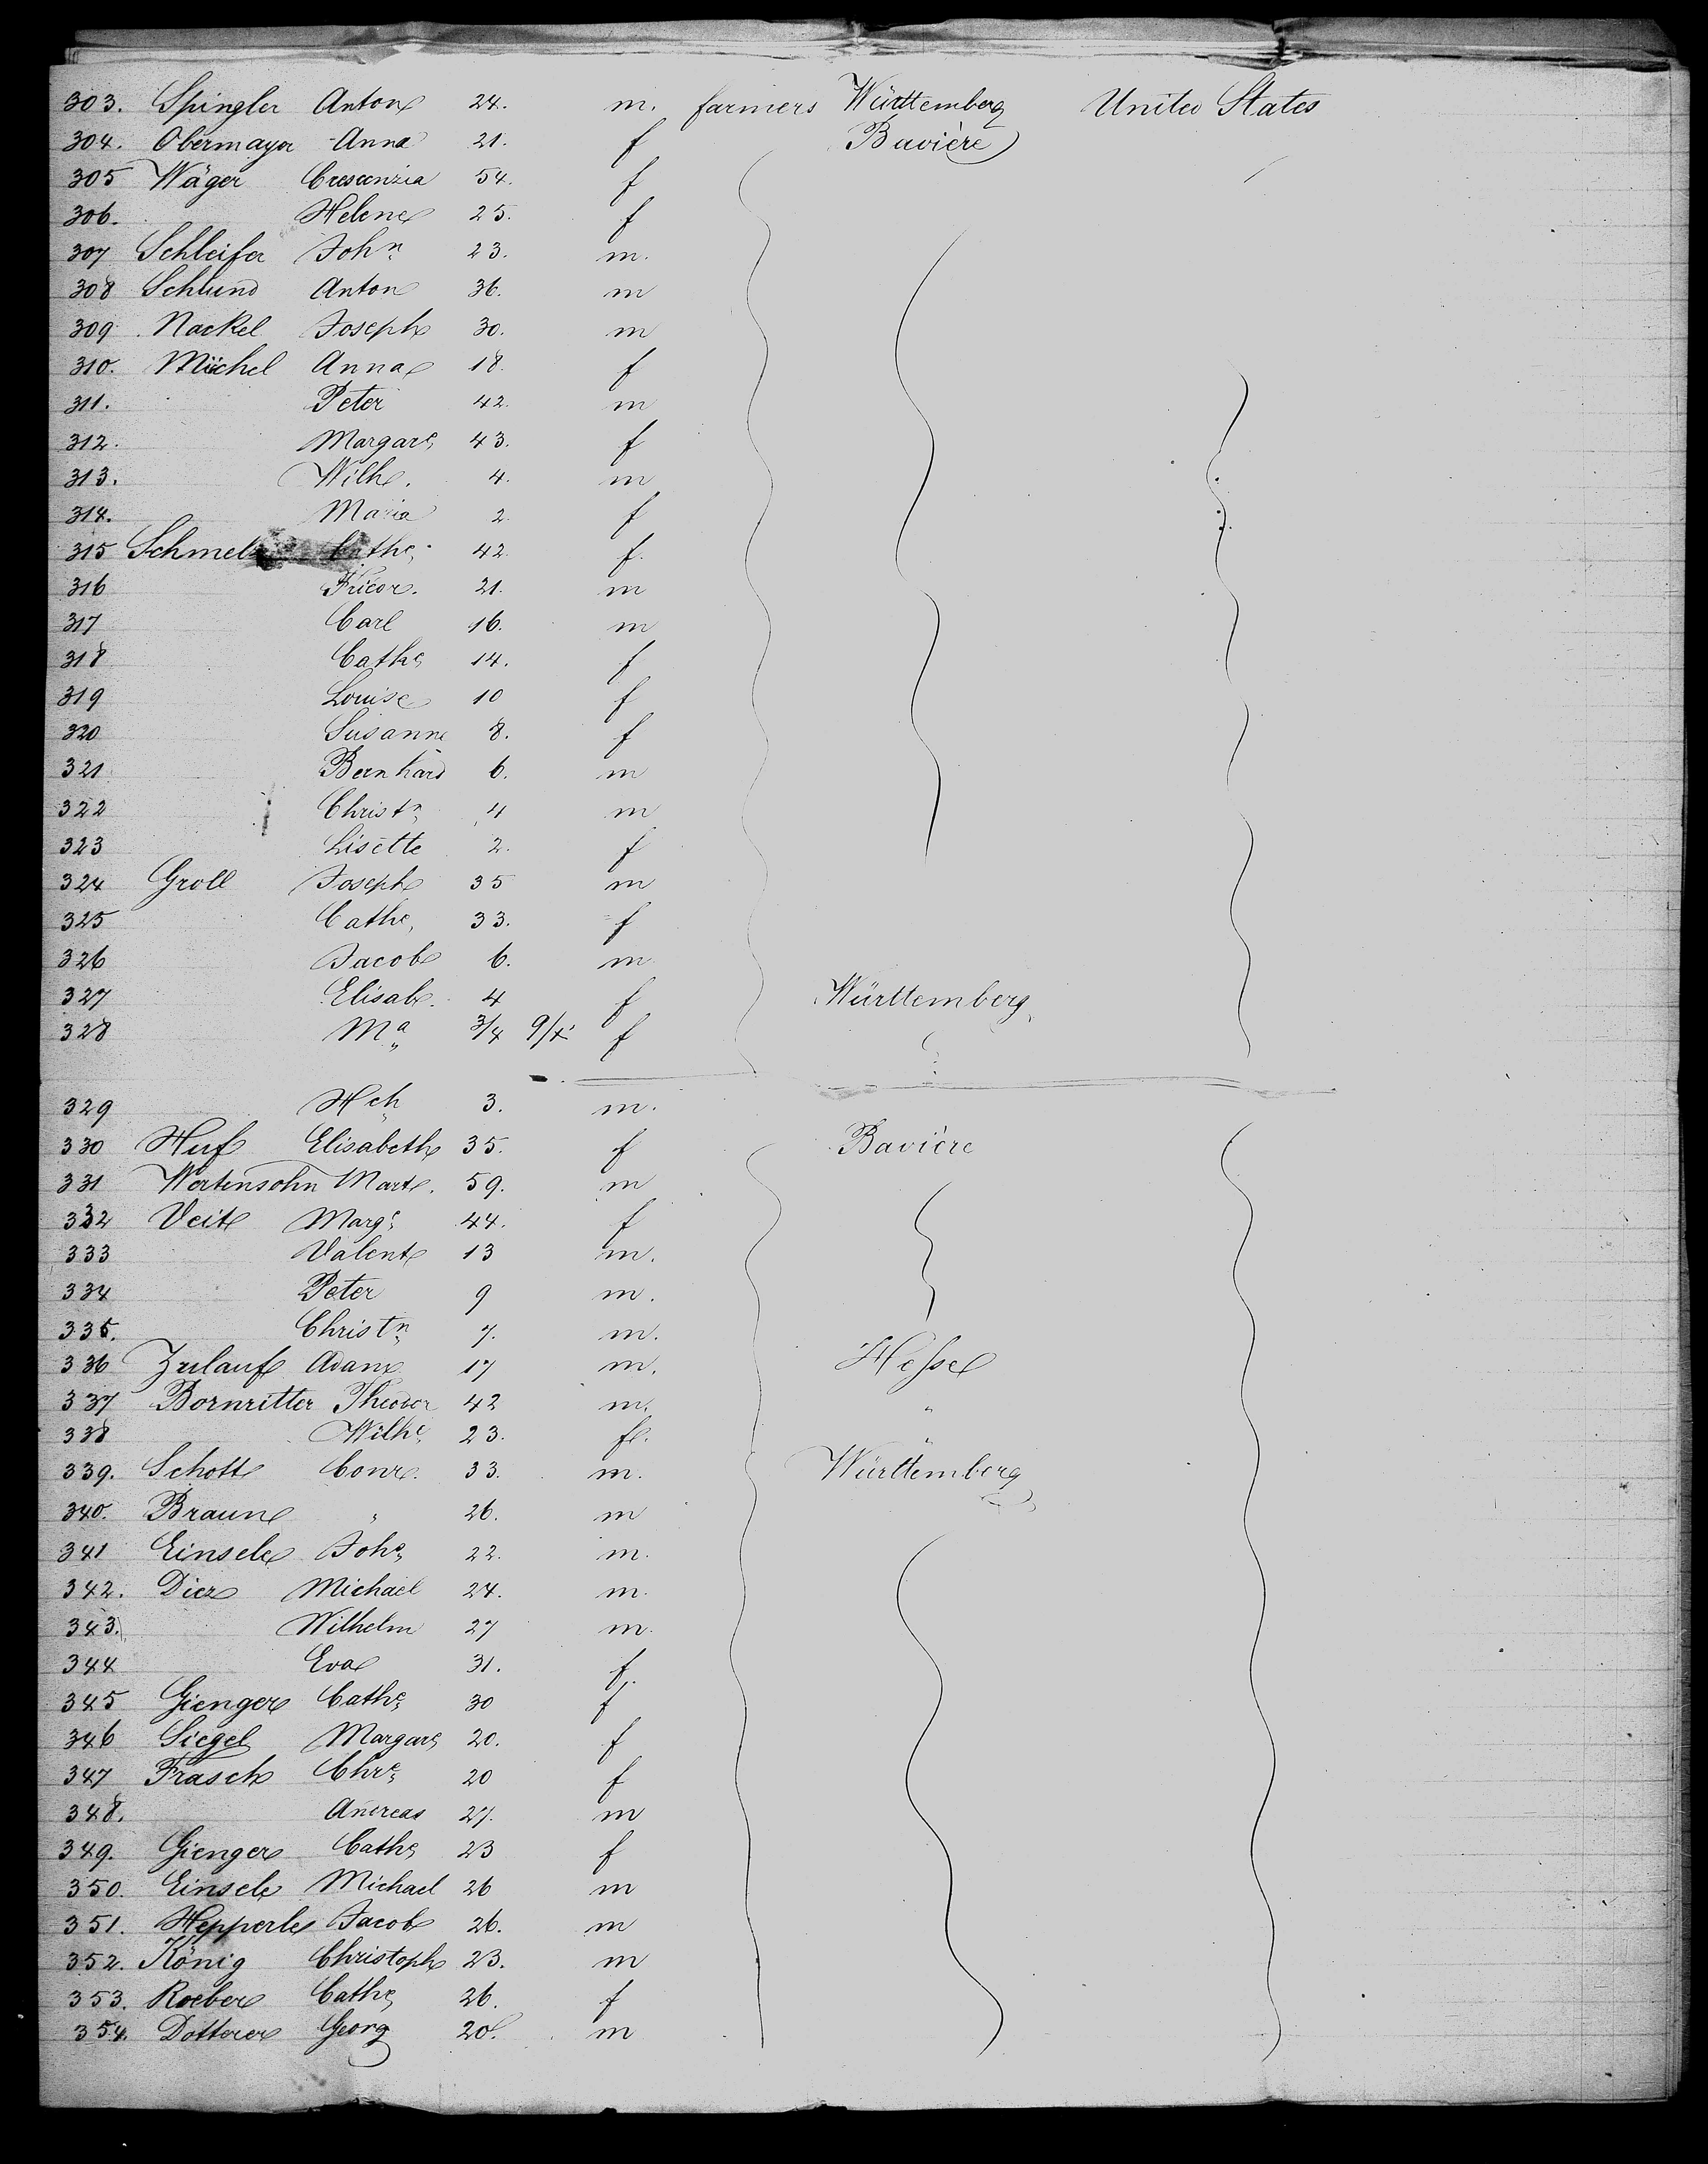 303. Spingler Anton 24. m. farmers Württemberg United States
304. Obermayer Anna 21. f Bavière
305 Wäger Crescenzia 54. f
306. Helene 25. f
307 Schleifer Johⁿ 23. m.
308 Schlund Anton 36. m
309 Nackel Joseph 30. m
310. Michel Anna 18. f
311. Peter 42. m
312. Margare 43. f
313. Wilh. 4. m
314. Maria 2. f
315 Schmelz Cathe 42. f.
316 Fricdr. 21. m
317 Carl 16. m
318 Cathe 14. f
319 Louise 10 f
320 Susanne 8. f
321 Bernhard 6. m
322 Christⁿ 4 m
323 Lisette 2. f
324 Groll Joseph 35 m
325 Cathe 33. f
326 Jacob 6. m
327 Elisab. 4 f Württemberg
328 Mᵃ 3/4 9/x f
329 Hch 3. m.
330 Huf Elisabeth 35. f Bavière
331 Wertensohn Mart. 59. m
332 Veit Marge 44. f
333 Valent 13 m.
334 Peter 9 m.
335. Christⁿ 7. m.
336 Zulauf Adam 17 m. Hesse
337 Bornritter Theodor 42 m. "
338 Wilhe 23. f. "
339. Schott Conr. 33. m. Württemberg
340. Braun " 26. m
341 Einsele Johs 22. m.
342. Dier Michael 24. m.
343. Wilhelm 27 m.
344 Eva 31. f.
345 Gienger Cathe 30 f
346 Siegel Margare 20. f
347 Frasch Chre 20 f
348. Andreas 27. m
349. Gienger Cathe 23 f
350. Einsele Michael 26 m
351. Hepperle Jacob 26. m
352. König Christoph 23. m
353. Roeber Cathe 26. f
354. Dotterer Georg 20. m